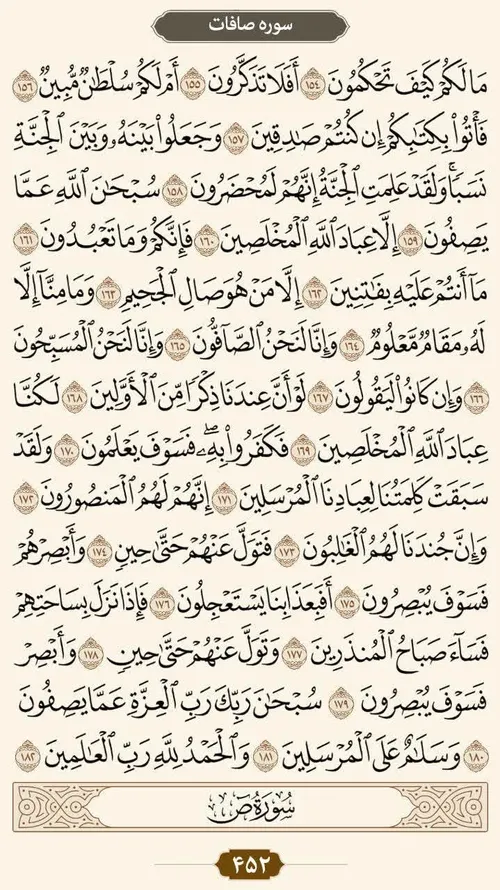 سوره صافات
مَا لَكُمْ كَيْفَ تَحْكُمُونَ ۝١٥٤ أَفَلَا تَذَكَّرُونَ ۝١٥٥ أَمْ لَكُمْ سُلْطَانٌ مُّبِينٌ ۝١٥٦
فَأْتُوا بِكِتَابِكُمْ إِن كُنتُمْ صَادِقِينَ ۝١٥٧ وَجَعَلُوا بَيْنَهُ وَبَيْنَ الْجِنَّةِ
نَسَبًا ۚ وَلَقَدْ عَلِمَتِ الْجِنَّةُ إِنَّهُمْ لَمُحْضَرُونَ ۝١٥٨ سُبْحَانَ اللَّهِ عَمَّا
يَصِفُونَ ۝١٥٩ إِلَّا عِبَادَ اللَّهِ الْمُخْلَصِينَ ۝١٦٠ فَإِنَّكُمْ وَمَا تَعْبُدُونَ ۝١٦١
مَا أَنتُمْ عَلَيْهِ بِفَاتِنِينَ ۝١٦٢ إِلَّا مَنْ هُوَ صَالِ الْجَحِيمِ ۝١٦٣ وَمَا مِنَّا إِلَّا
لَهُ مَقَامٌ مَّعْلُومٌ ۝١٦٤ وَإِنَّا لَنَحْنُ الصَّافُّونَ ۝١٦٥ وَإِنَّا لَنَحْنُ الْمُسَبِّحُونَ
۝١٦٦ وَإِن كَانُوا لَيَقُولُونَ ۝١٦٧ لَوْ أَنَّ عِندَنَا ذِكْرًا مِّنَ الْأَوَّلِينَ ۝١٦٨ لَكُنَّا
عِبَادَ اللَّهِ الْمُخْلَصِينَ ۝١٦٩ فَكَفَرُوا بِهِ ۖ فَسَوْفَ يَعْلَمُونَ ۝١٧٠ وَلَقَدْ
سَبَقَتْ كَلِمَتُنَا لِعِبَادِنَا الْمُرْسَلِينَ ۝١٧١ إِنَّهُمْ لَهُمُ الْمَنصُورُونَ ۝١٧٢
وَإِنَّ جُندَنَا لَهُمُ الْغَالِبُونَ ۝١٧٣ فَتَوَلَّ عَنْهُمْ حَتَّىٰ حِينٍ ۝١٧٤ وَأَبْصِرْهُمْ
فَسَوْفَ يُبْصِرُونَ ۝١٧٥ أَفَبِعَذَابِنَا يَسْتَعْجِلُونَ ۝١٧٦ فَإِذَا نَزَلَ بِسَاحَتِهِمْ
فَسَاءَ صَبَاحُ الْمُنذَرِينَ ۝١٧٧ وَتَوَلَّ عَنْهُمْ حَتَّىٰ حِينٍ ۝١٧٨ وَأَبْصِرْ
فَسَوْفَ يُبْصِرُونَ ۝١٧٩ سُبْحَانَ رَبِّكَ رَبِّ الْعِزَّةِ عَمَّا يَصِفُونَ
۝١٨٠ وَسَلَامٌ عَلَى الْمُرْسَلِينَ ۝١٨١ وَالْحَمْدُ لِلَّهِ رَبِّ الْعَالَمِينَ ۝١٨٢
سُورَةُ ص
۴۵۲